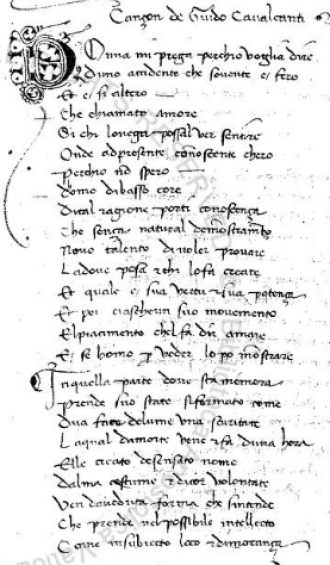 Canzon de Guido Cavalcanti
Donna mi prega perchio voglia dire
Duno accidente che sovente e fero
Et e si altero
Che chiamato amore
Si chi lonega possal ver sentire
Onde adpresente conoscente chero
Perchio no spero
Chomo dibasso core
Dital ragione porti conoscenza
Che senza natural demostramto
Novo talento divoler provare
Ladove posa & chi lofa creare
Et quale e sua vertu & sua potenza
Et poi ciascheun suo movimento
Elpiacimento chel fa dir amare
E se homo p veder lo po mostrare
Inquella parte dove sta memora
Prende suo stato siformato come
Diafano delume una scuritate
Laqual damorte vene & fa dimora
Elle creato desensato nome
Dalma costume & dicor volontate
Ven daveduta forma che sintende
Che prende nel possibile intellecto
Come insubiecto loco & dimoranza